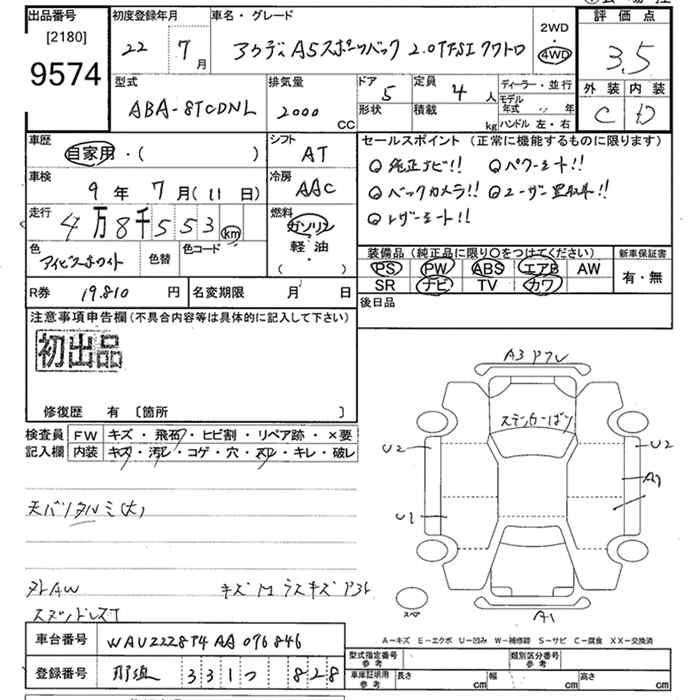 出品番号 初度登録年月 車名・グレード 2WD 評価点
[2180] 22 7月 アウディA5スポーツバック 2.0TFSI クワトロ 4WD 3.5
9574
型式 排気量 ドア 定員 ディーラー・並行 外装 内装
ABA-8TCDNL 2000 CC 5 4人 モデル年式 年 C D
形状 積載 kg ハンドル 左・右
車歴 シフト セールスポイント (正常に機能するものに限ります)
自家用・( ) AT 純正ナビ!! パワーシート!!
車検 冷房 バックカメラ!! ユーザー買取車!!
9年 7月 (11日) AAC レザーシート!!
走行 燃料
4万8千553km ガソリン
色 色替 色コード 軽・油
アイビスホワイト ( )
装備品 (純正品に限り○をつけてください) 新車保証書
PS PW ABS エアB AW 有・無
SR ナビ TV カワ
R券 19.810円 名変期限 月 日 後日品
注意事項申告欄 (不具合内容等は具体的に記入して下さい)
初出品
修復歴 有 〔箇所 〕
検査員 FW キズ・飛石・ヒビ割・リペア跡・×要
記入欄 内装 キズ・汚レ・コゲ・穴・スレ・キレ・破レ
A3
U2 U2
U1
天バリタルミ(大)
外AW
スペア
A1
A-キズ E-エクボ U-凹み W-補修跡 S-サビ C-腐食 XX-交換済
車台番号 WAUZZZ8T4AA096846
登録番号 那須 331 828
型式指定番号 参考 類別区分番号 参考
車庫証明用 参考 長さ cm 幅 cm 高さ cm